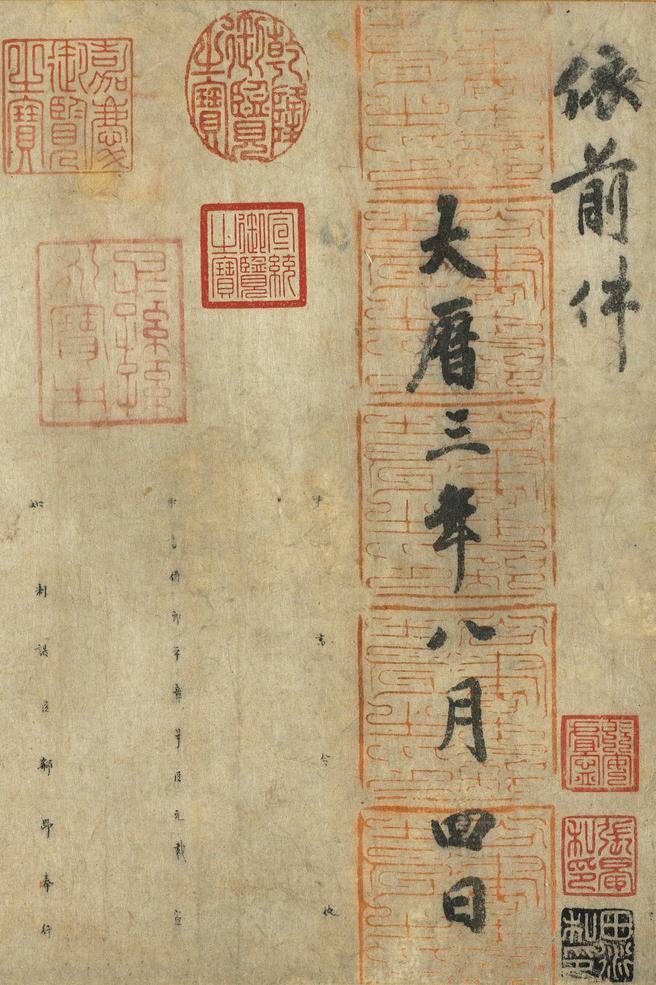 依前件
大曆三年八月四日
張晏私印
田衍私印
中書令使
中書侍郎平章事臣元載宣
乾隆御覽之寶
宣統御覽之寶
知制誥臣郗昂奉行
嘉慶御覽之寶